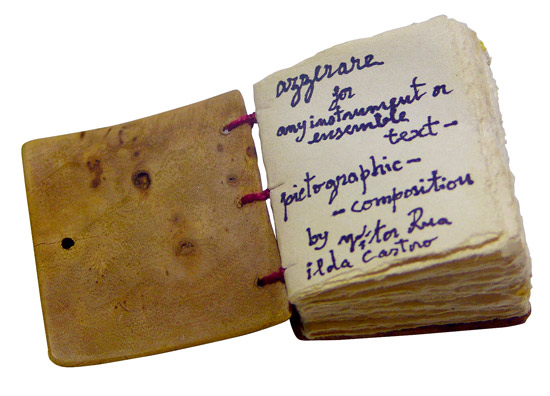 azzerare
for
any instrument or
ensemble
text-
pictographic-
-composition
by vítor Rua
ilda Castro